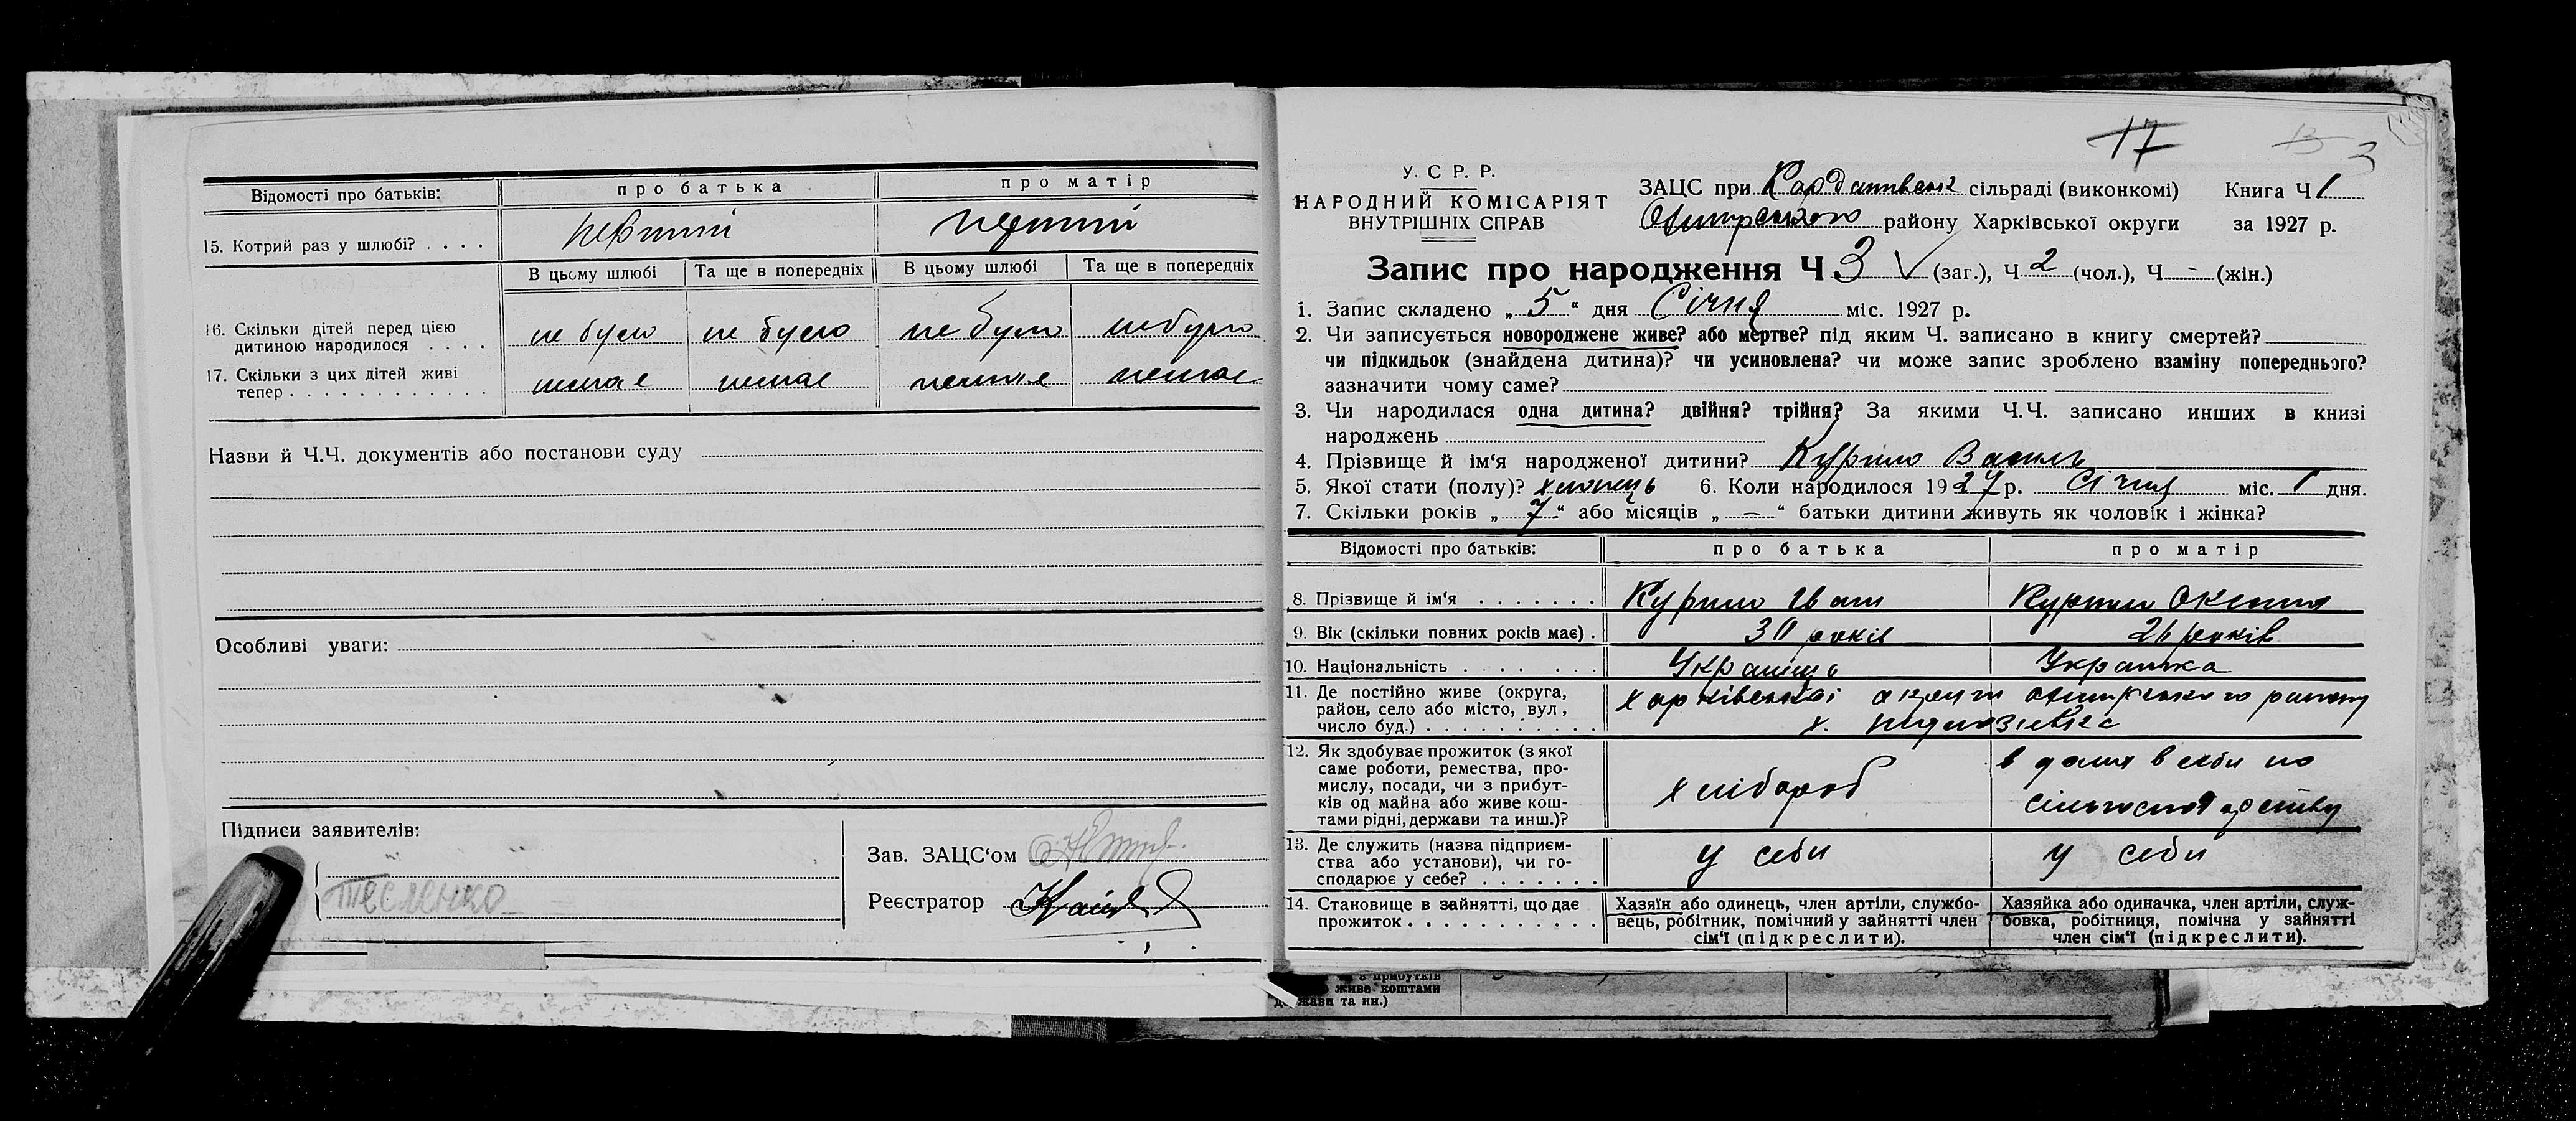 Відомості про батьків: про батька про матір
15. Котрий раз у шлюбі? . . . . первший перший
В цьому шлюбі Та ще в попередніх В цьому шлюбі Та ще в попередніх
16. Скільки дітей перед цією
дитиною народилося . . . . не було не було не було не було
17. Скільки з цих дітей живі
тепер . . . . . . . . . . . . немає немає немає немає
Назви й Ч.Ч. документів або постанови суду
Особливі уваги:
Підписи заявителів:
Тесленко
Зав. ЗАЦС'ом
Реєстратор
17
3
У. С. Р. Р.
НАРОДНИЙ КОМІСАРІЯТ
ВНУТРІШНІХ СПРАВ
ЗАЦС при сільраді (виконкомі) Книга Ч 1
району Харківської округи за 1927 р.
Запис про народження Ч 3 (заг.), Ч 2 (чол.), Ч - (жін.)
1. Запис складено „ 5 “ дня Січня міс. 1927 р.
2. Чи записується новороджене живе? або мертве? під яким Ч. записано в книгу смертей?
чи підкидьок (знайдена дитина)? чи усиновлена? чи може запис зроблено взаміну попереднього?
зазначити чому саме?
3. Чи народилася одна дитина? двійня? трійня? За якими Ч.Ч. записано инших в книзі
народжень
4. Прізвище й ім'я народженої дитини? Курило Василь
5. Якої стати (полу)? хлопець 6. Коли народилося 1927 р. Січня міс. 1 дня.
7. Скільки років „ 7 “ або місяців „ - “ батьки дитини живуть як чоловік і жінка?
Відомості про батьків: про батька про матір
8. Прізвище й ім'я . . . . . . . Курило Іван Курило Оксана
9. Вік (скільки повних років має) . 30 років 26 років
10. Національність . . . . . . . Українець Українка
11. Де постійно живе (округа, Харківської округи району
район, село або місто, вул, х.
число буд.) . . . . . . . . . .
12. Як здобуває прожиток (з якої
саме роботи, ремества, про-
мислу, посади, чи з прибут-
ків од майна або живе кош-
тами рідні, держави та инш.)? хлібороб
13. Де служить (назва підприєм-
ства або установи), чи го-
сподарює у себе? . . . . . . . у себи у себи
14. Становище в зайнятті, що дає
прожиток . . . . . . . . . . .
Хазяїн або одинець, член артіли, службо-
вець, робітник, помічний у зайнятті член
сім'ї (підкреслити).
Хазяйка або одиначка, член артіли, служ-
бовка, робітниця, помічна у зайнятті
член сім'ї (підкреслити).
з прибутків
живе коштами
держави та ин.)